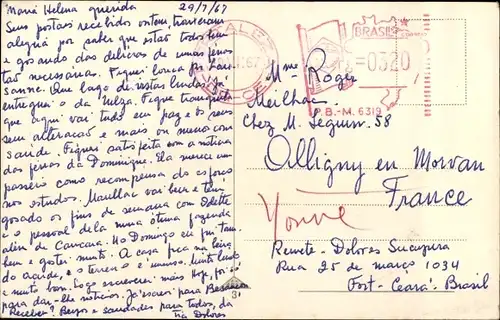 Maria Helena querida 29/7/67
Seus postais recebidos ontem, trouxeram
alegria por saber que estão todos bem
e gosando das delicias de umas ferias
tão necessarias. Fiquei louca por Lau-
sanne. Que lago de vistas lindas. Já
entreguei o da Nelza. Fique tranquila
que aqui vai tudo em paz e os seus
sem alteração e mais ou menos com
saúde. Fiquei satisfeita com a noticia
das ferias da Dominique. Ela merece um
passeio como recompensa do esforço
nos estudos. Maullac vai bem e tem
gosado os fins de semana com Odette
e o pessoal dela numa ótima fazenda
alem de Caucaia. No Domingo eu fui tam-
bem e gostei muito. A casa fica na beira
do açude, e o terreno é imenso. Muito lindo
e muito bom. Logo escreverei mais. Hoje, foi só
para dar-lhe noticias. Já escrevi para
Recebeu? Beijos e saudades para todos, da
Tia Dolores
BRASIL
=0320
B.-M. 6319
67
Mme Roger
Meilhac
Chez M. Seguin. 58
Alligny en Morvan
France
Yonne
Remete - Dolores Sucupira
Rua 25 de março 1034
Fort - Ceará - Brasil